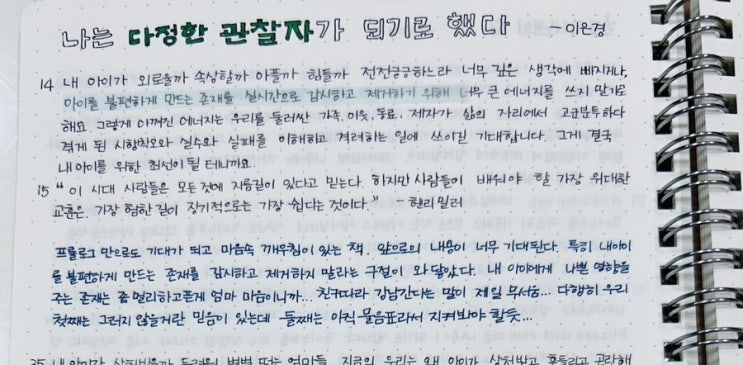 나는 다정한 관찰자가 되기로 했다 - 이은경
14 내 아이가 외로울까 속상할까 아플까 힘들까 전전긍긍하느라 너무 깊은 생각에 빠지거나,
아이를 불편하게 만드는 존재를 실시간으로 감시하고 제거하기 위해 너무 큰 에너지를 쓰지 말기로
해요. 그렇게 아껴진 에너지는 우리를 둘러싼 가족, 이웃, 동료, 제자가 삶의 자리에서 고군분투하다
겪게 된 시행착오와 실수와 실패를 이해하고 격려하는 일에 쓰이길 기대합니다. 그게 결국
내 아이를 위한 최선이 될 테니까요.
15 " 이 시대 사람들은 모든 것에 지름길이 있다고 믿는다. 하지만 사람들이 배워야 할 가장 위대한
교훈은, 가장 험한 길이 장기적으로는 가장 쉽다는 것이다. " - 헨리 밀러
프롤로그 만으로도 기대가 되고 마음속 깨우침이 있는 책. 앞으로의 내용이 너무 기대된다. 특히 내아이
를 불편하게 만드는 존재를 감시하고 제거하지 말라는 구절이 와닿았다. 내 아이에게 나쁠 영향을
주는 존재는 좀 멀리하고픈게 엄마 마음이니까... 친구따라 강남간다는 말이 제일 무서운... 다행히 우리
첫째는 그러지 않을거란 믿음이 있는데 둘째는 아직 물음표라서 지켜봐야 할듯..